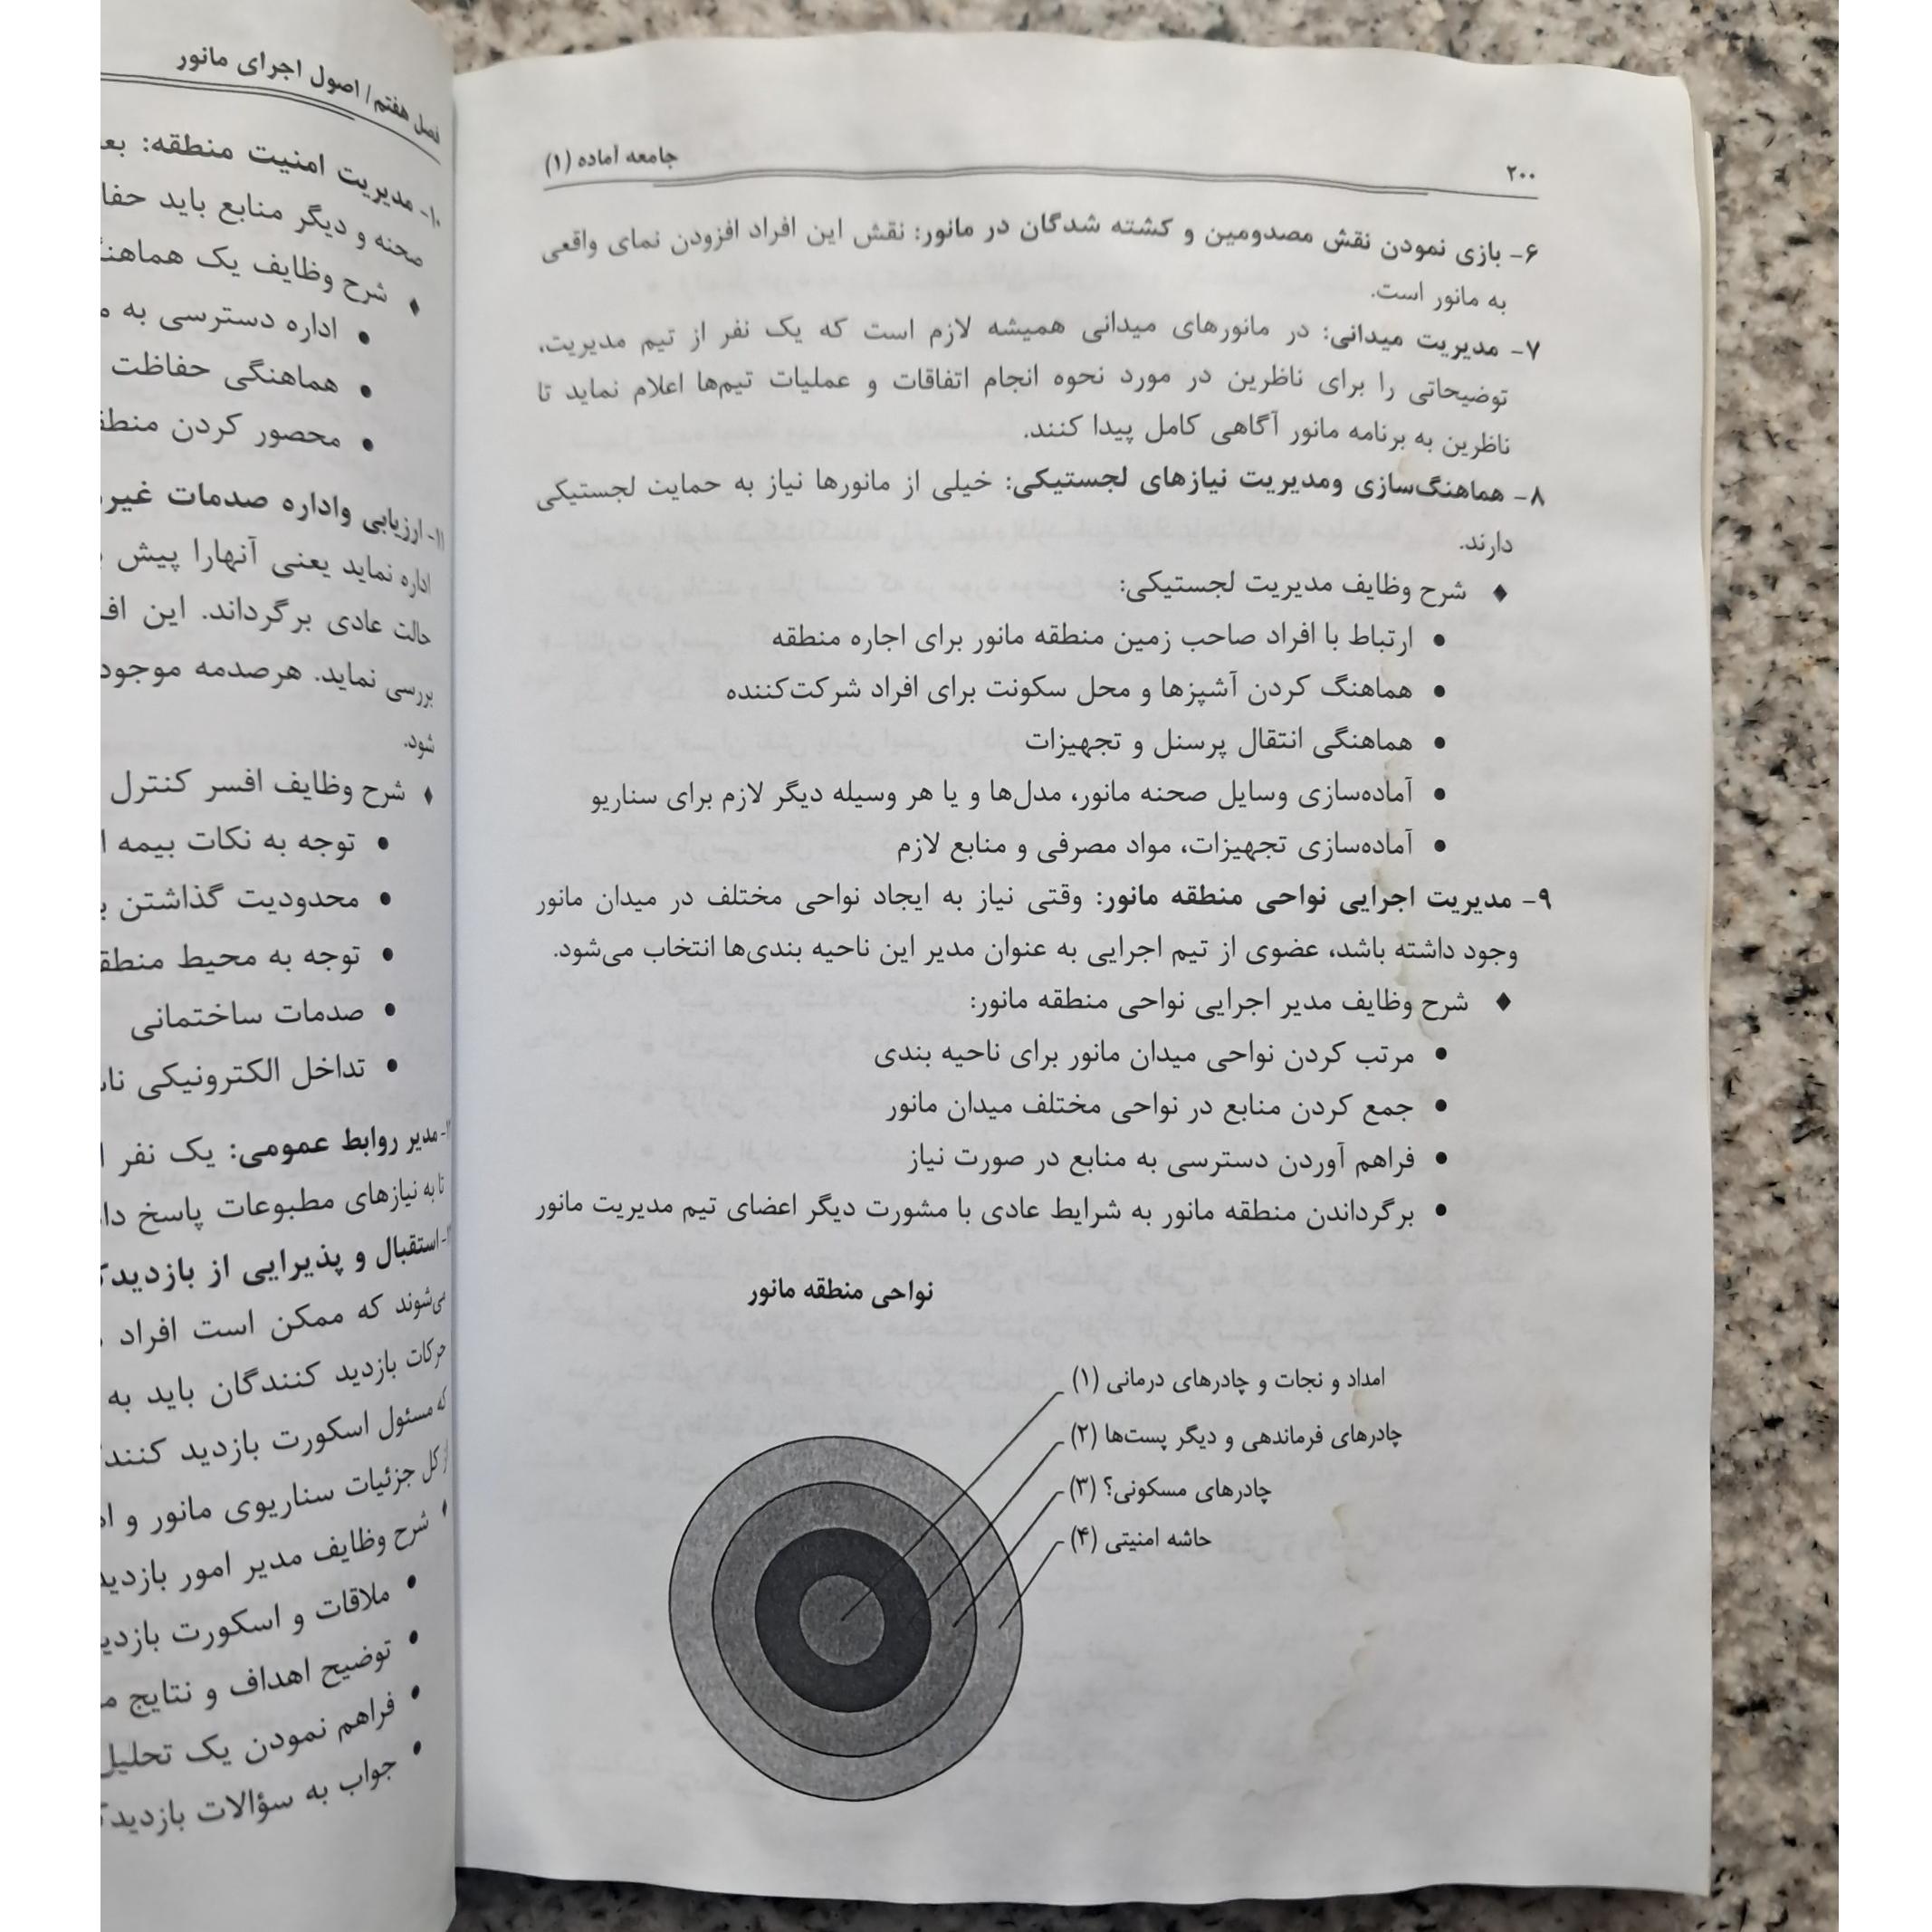 ۲۰۰
جامعه آماده (۱)
۶- بازی نمودن نقش مصدومین و کشته شدگان در مانور: نقش این افراد افزودن نمای واقعی
به مانور است.
۷- مدیریت میدانی: در مانورهای میدانی همیشه لازم است که یک نفر از تیم مدیریت،
توضیحاتی را برای ناظرین در مورد نحوه انجام اتفاقات و عملیات تیم‌ها اعلام نماید تا
ناظرین به برنامه مانور آگاهی کامل پیدا کنند.
۸- هماهنگ‌سازی ومدیریت نیازهای لجستیکی: خیلی از مانورها نیاز به حمایت لجستیکی
دارند.
♦ شرح وظایف مدیریت لجستیکی:
• ارتباط با افراد صاحب زمین منطقه مانور برای اجاره منطقه
• هماهنگ کردن آشپزها و محل سکونت برای افراد شرکت‌کننده
• هماهنگی انتقال پرسنل و تجهیزات
• آماده‌سازی وسایل صحنه مانور، مدل‌ها و یا هر وسیله دیگر لازم برای سناریو
• آماده‌سازی تجهیزات، مواد مصرفی و منابع لازم
۹- مدیریت اجرایی نواحی منطقه مانور: وقتی نیاز به ایجاد نواحی مختلف در میدان مانور
وجود داشته باشد، عضوی از تیم اجرایی به عنوان مدیر این ناحیه بندی‌ها انتخاب می‌شود.
♦ شرح وظایف مدیر اجرایی نواحی منطقه مانور:
• مرتب کردن نواحی میدان مانور برای ناحیه بندی
• جمع کردن منابع در نواحی مختلف میدان مانور
• فراهم آوردن دسترسی به منابع در صورت نیاز
• برگرداندن منطقه مانور به شرایط عادی با مشورت دیگر اعضای تیم مدیریت مانور
نواحی منطقه مانور
امداد و نجات و چادرهای درمانی (۱)
چادرهای فرماندهی و دیگر پست‌ها (۲)
چادرهای مسکونی؟ (۳)
حاشه امنیتی (۴)
فصل هفتم/ اصول اجرای مانور
۱۰- مدیریت امنیت منطقه:
و دیگر منابع باید
♦ شرح وظایف یک
• اداره دسترسی به
• هماهنگی حفاظت
• محصور کردن
۱۱- ارزیابی واداره صدمات
اداره نماید یعنی آنهارا پیش
حالت عادی برگرداند. این
بررسی نماید. هرصدمه
شود.
♦ شرح وظایف افسر کنترل
• توجه به نکات بیمه
• محدودیت گذاشتن
• توجه به محیط
• صدمات ساختمانی
• تداخل الکترونیکی
مدیر روابط عمومی: یک نفر
تا به نیازهای مطبوعات پاسخ
استقبال و پذیرایی از
می‌شوند که ممکن است افراد
حرکات بازدید کنندگان باید به
که مسئول اسکورت بازدید
کل جزئیات سناریوی مانور و
♦ شرح وظایف مدیر امور
• ملاقات و اسکورت
• توضیح اهداف و نتایج
• فراهم نمودن یک تحلیل
• جواب به سؤالات